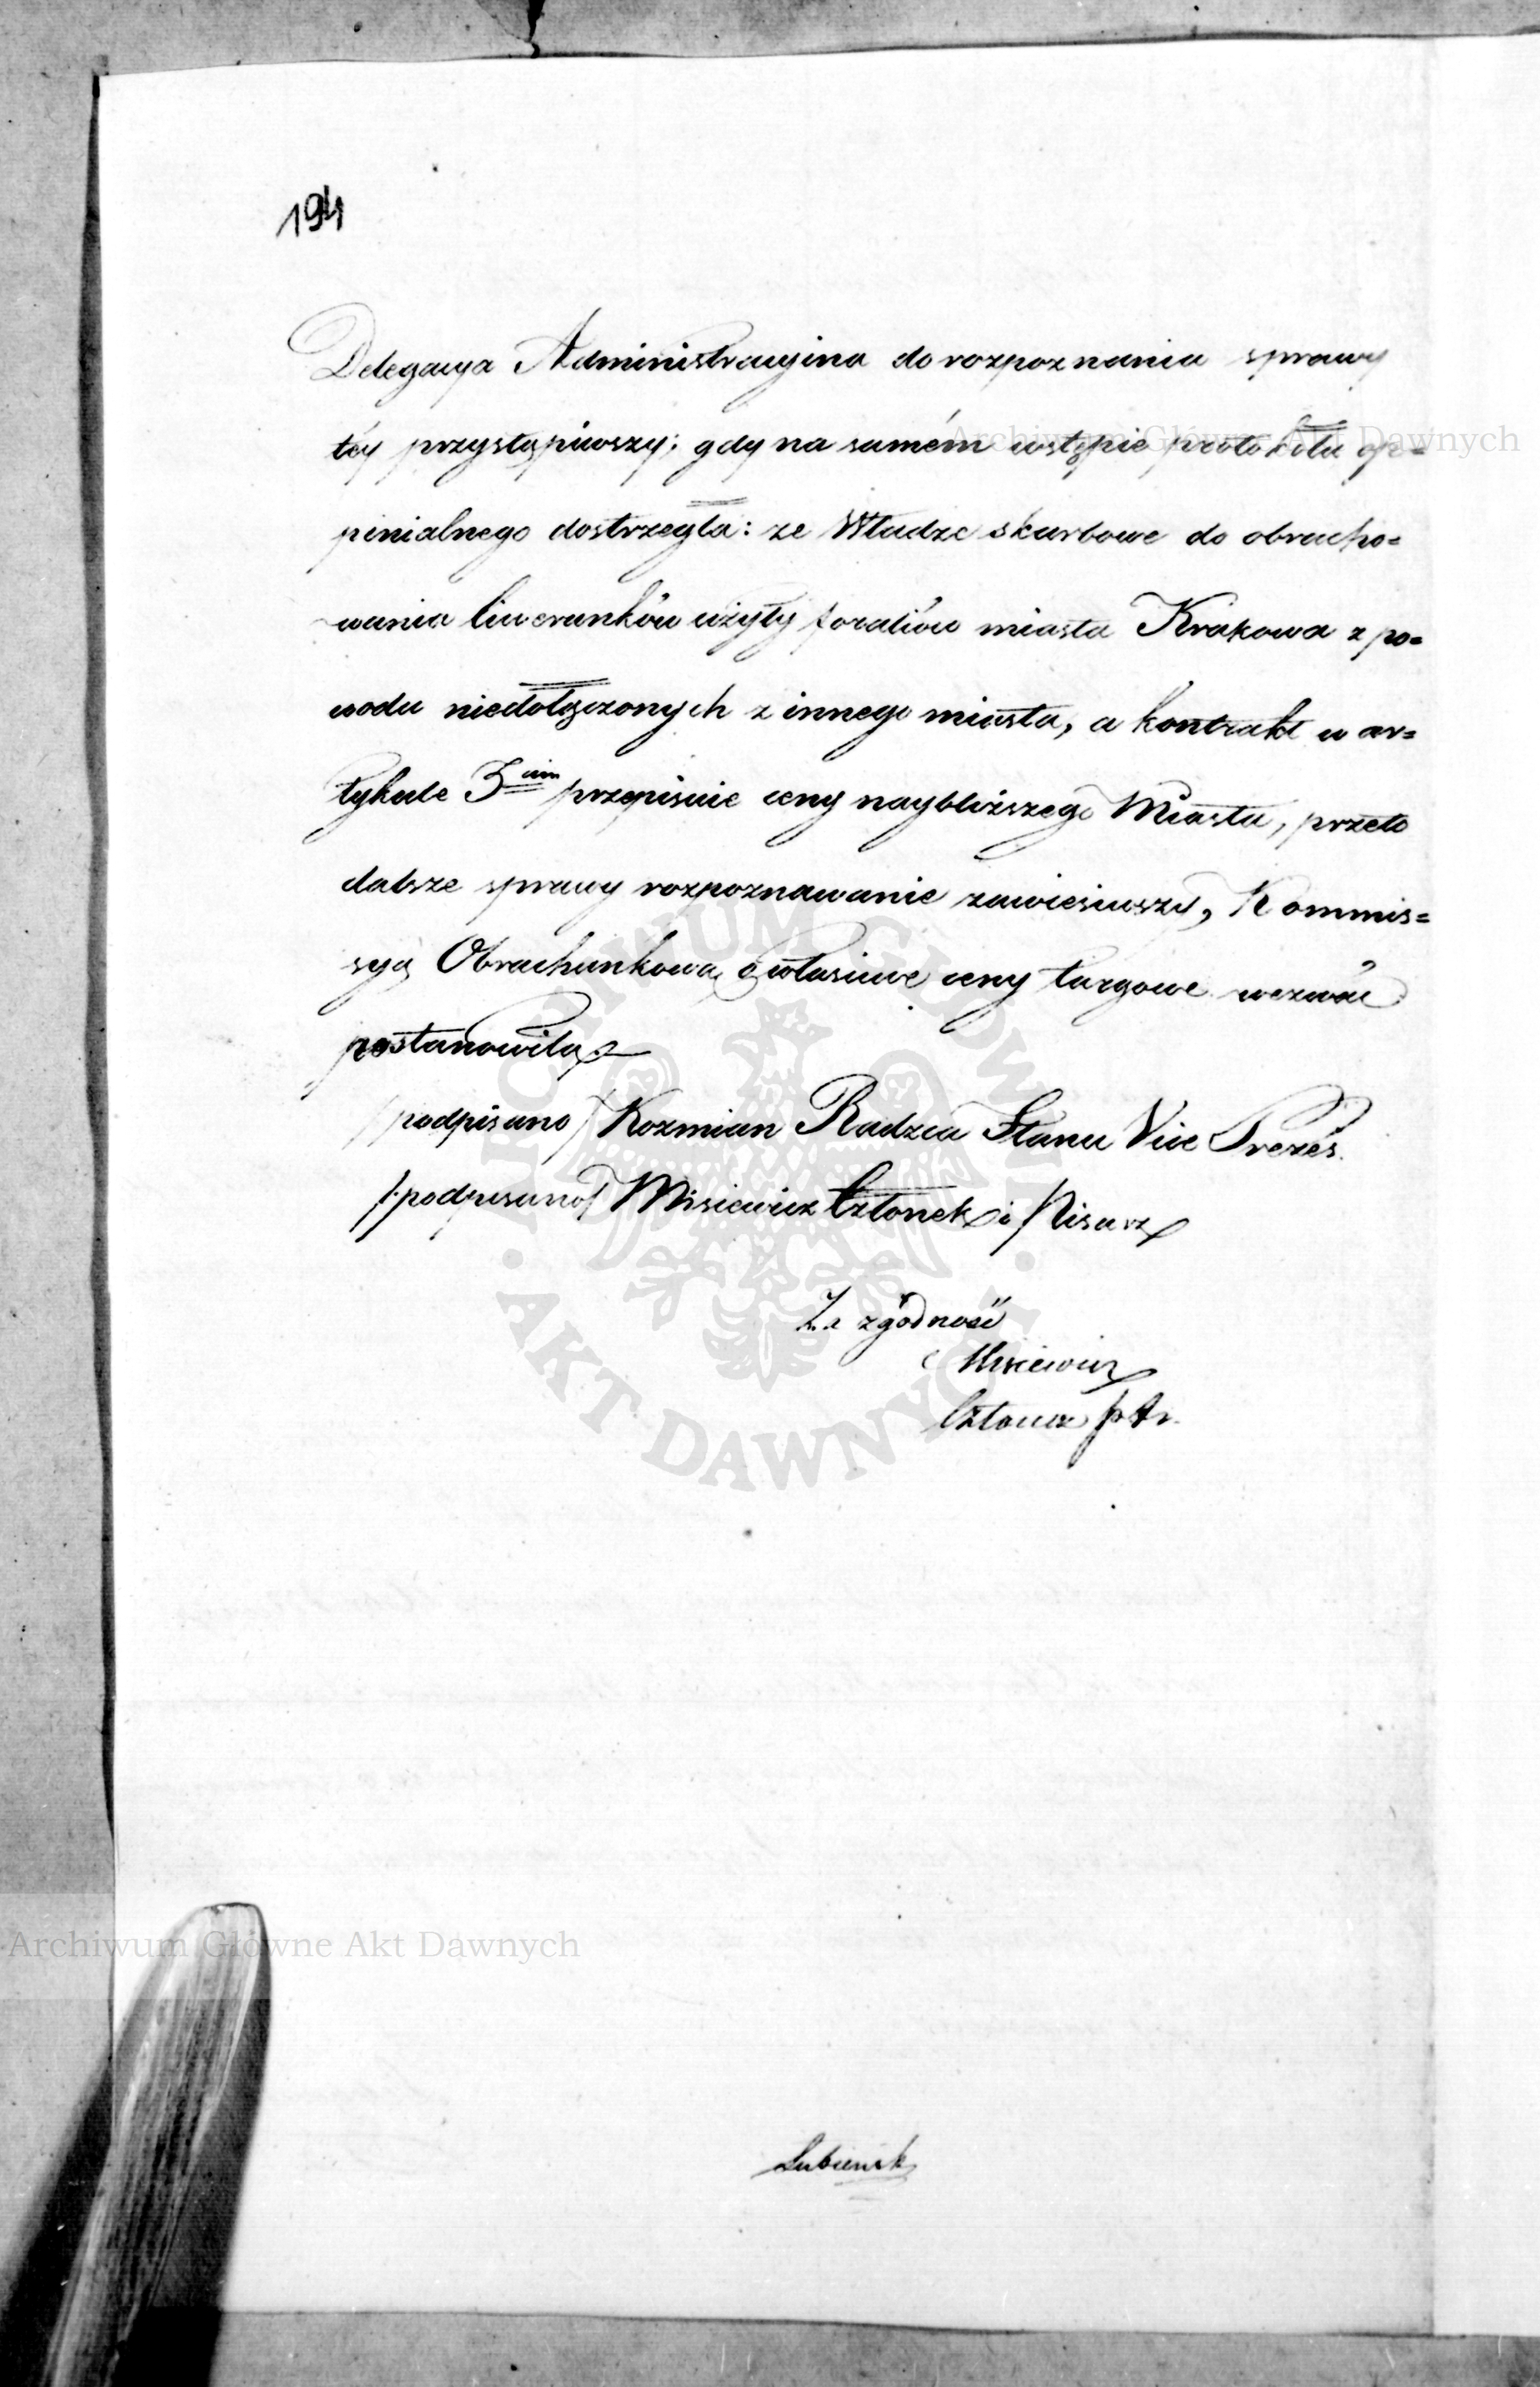 194
Delegacya Administracyina do rozpoznania sprawy
téy przystąpiwszy; gdy na samém wstępie protokółu op=
pinialnego dostrzegła: ze Władze skarbowe do obracho=
wania liwerunków użyły foraliów miasta Krakowa z po=
wodu niedołączonych z innego miasta, a kontrakt w ar=
tykule 3cim przepisuie ceny naybliższego Miasta, przeto
dalsze sprawy rozpoznawanie zawiesiwszy, Kommis=
syą Obrachunkową o właściwe ceny targowe wezwać
postanowiła.
/podpisano/ Kozmian Radzca Stanu Vice Prezes.
/podpisano/ Misiewicz Członek i Pisarz
Za zgodność
Misiewicz
Członek
Lubieński
Archiwum Główne Akt Dawnych
Archiwum Główne Akt Dawnych
ARCHIWUM GŁÓWNE · AKT DAWNYCH ·